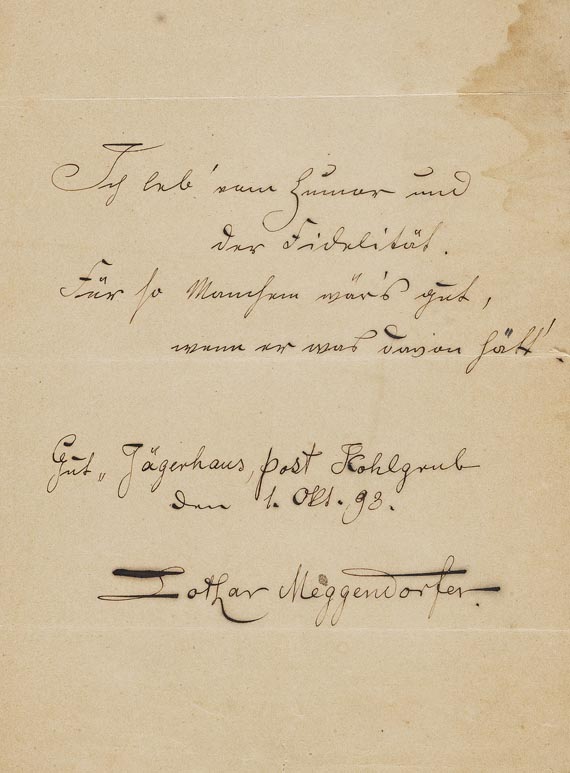 Ich leb' vom Humor und
der Fidelität.
Für so Manchem wär's gut,
wenn er was davon hätt'!
Gut „ Jägerhaus, post Kohlgrub
den 1. Okt. 93.
Lothar Meggendorfer.